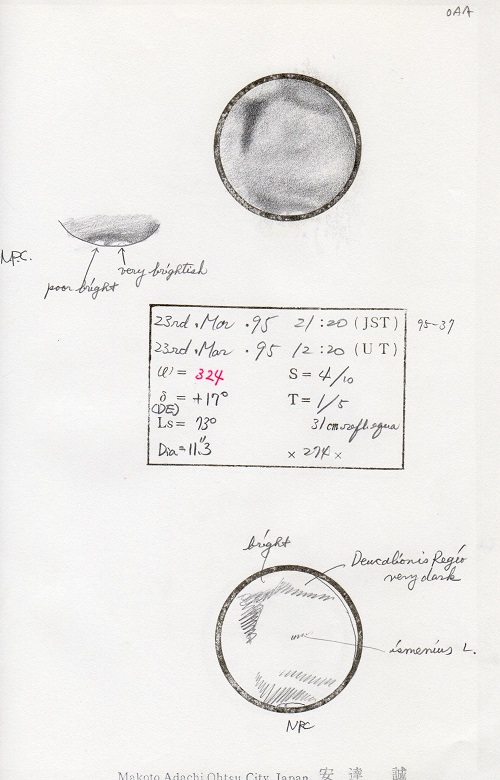 OAA
N.P.C.
very brightish
poor bright
23rd. Mar. 95 21:20 (JST)
95-37
23rd. Mar. 95 12:20 (UT)
ω = 324 S = 4/10
δ = +17° T = 1/5
(DE)
Ls = 73° 31cm refl. equa
Dia = 11".3 × 274 ×
bright
Deucalionis Regio
very dark
ismenius L.
NPC
Makoto Adachi Ohtsu City Japan 安達 誠